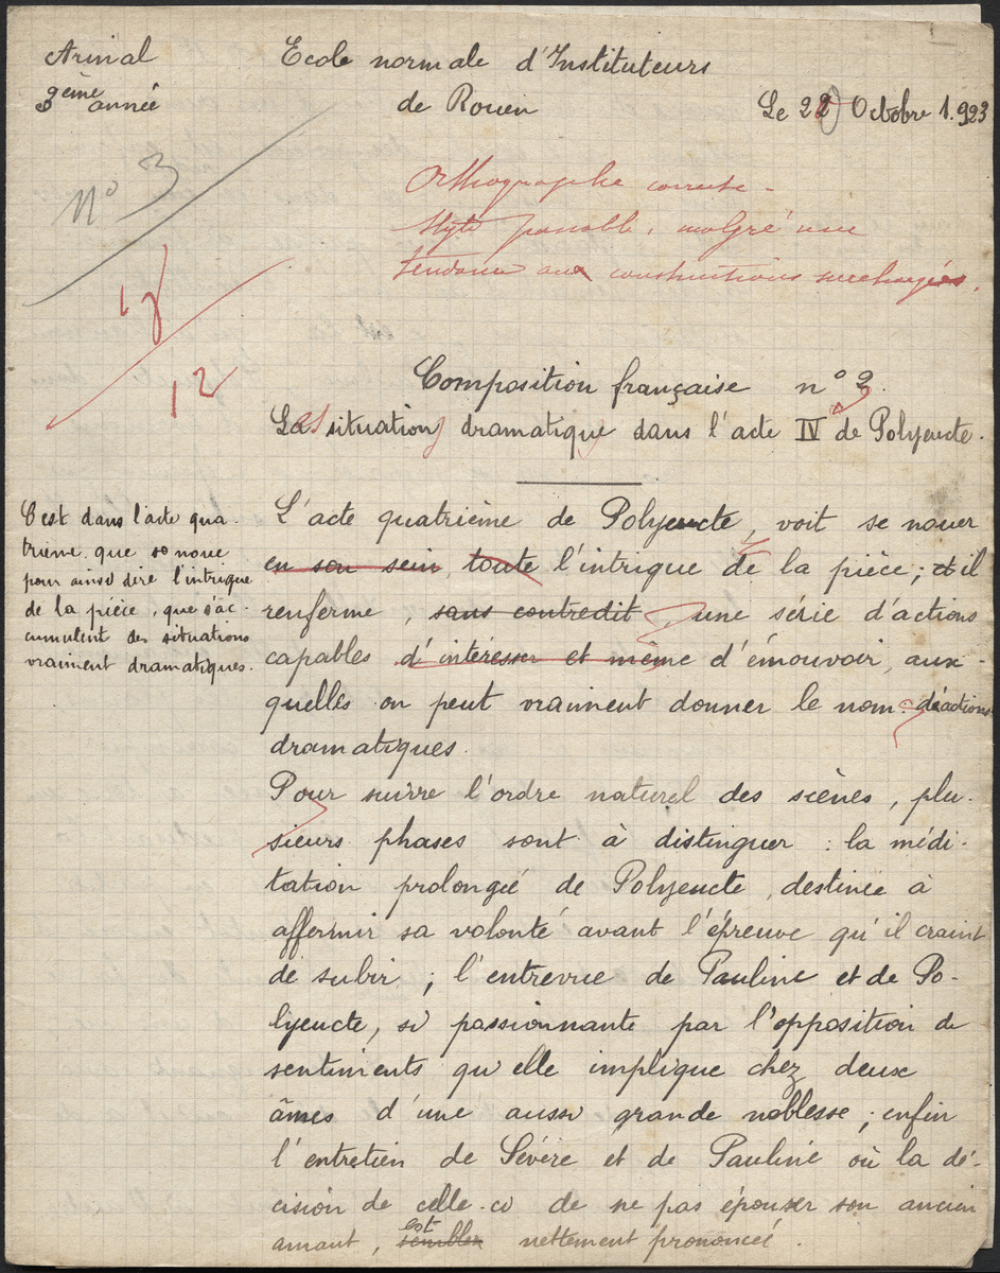 Arinal
3ème année
Ecole normale d'Instituteurs
de Rouen
Le 22 Octobre 1.923
N° 3
Orthographe correcte -
Style passable, malgré une
tendance aux constructions surchargées.
12
Composition française n° 2.
Les situations dramatiques dans l'acte IV de Polyeucte.
C'est dans l'acte qua-
trième que se noue
pour ainsi dire l'intrigue
de la pièce, que s'ac-
cumulent des situations
vraiment dramatiques.
L'acte quatrième de Polyeucte, voit se nouer
en son sein, toute l'intrigue de la pièce; et il
renferme, sans contredit, une série d'actions
capables d'intéresser et même d'émouvoir, aux-
quelles on peut vraiment donner le nom d'actions
dramatiques.
Pour suivre l'ordre naturel des scènes, plu-
sieurs phases sont à distinguer : la médi-
tation prolongée de Polyeucte, destinée à
affermir sa volonté avant l'épreuve qu'il craint
de subir ; l'entrevue de Pauline et de Po-
lyeucte, si passionnante par l'opposition de
sentiments qu'elle implique chez deux
âmes d'une aussi grande noblesse ; enfin
l'entretien de Sévère et de Pauline où la dé-
cision de celle-ci de ne pas épouser son ancien
amant, semble est nettement prononcée.